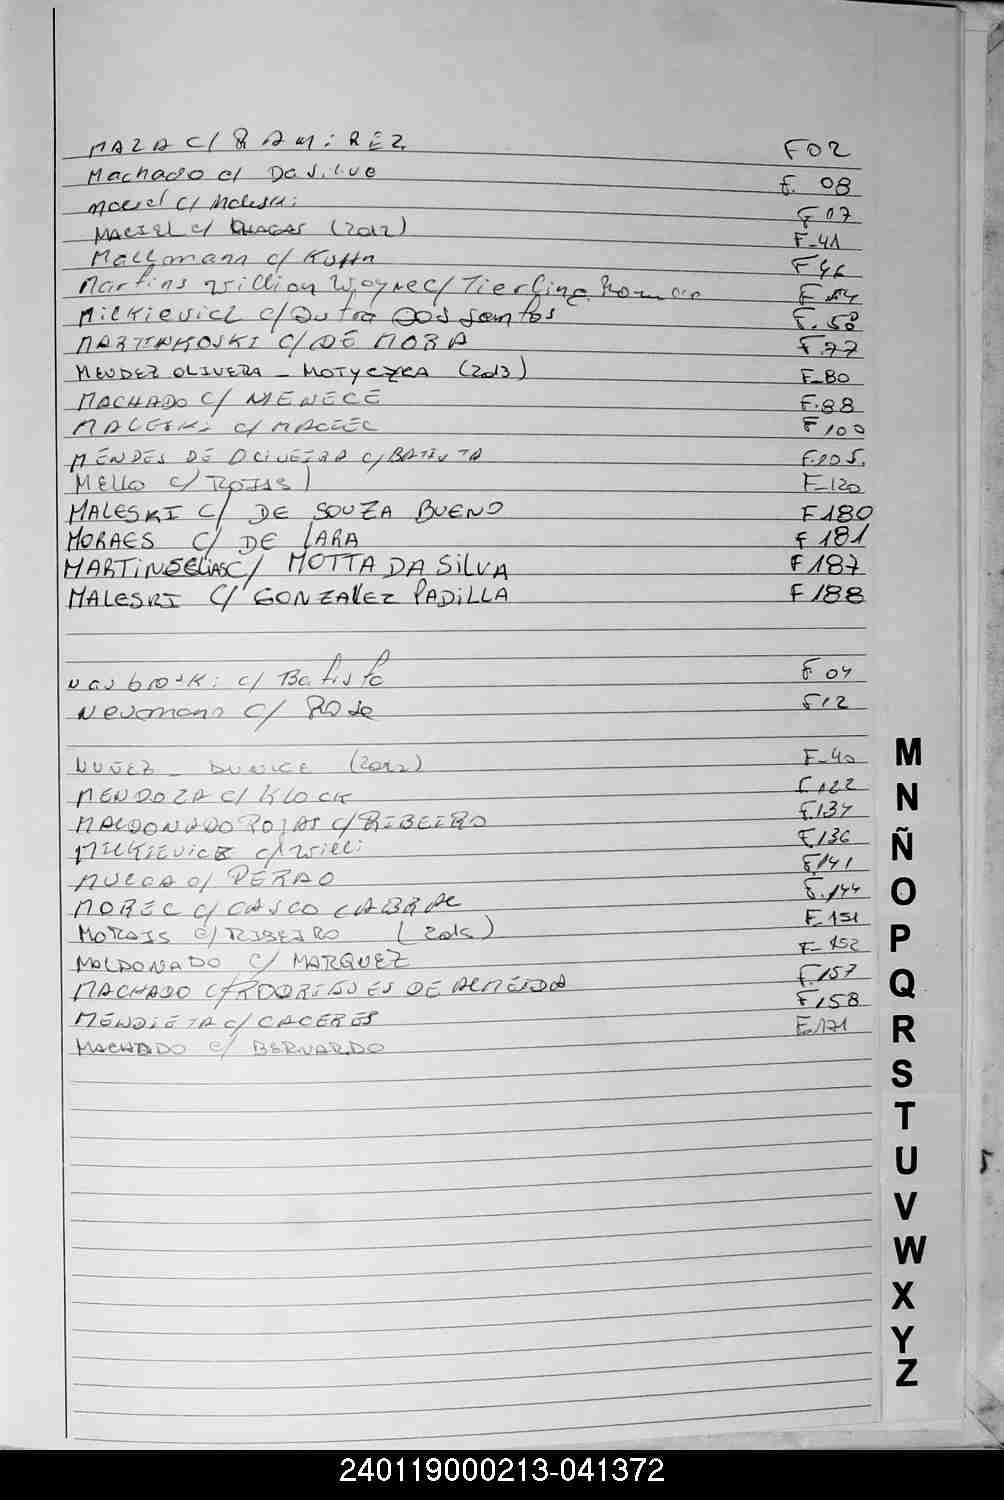 MAZA C/ RAMIREZ F 02
Machado c/ Da Silva F. 08
Maciel c/ Maleski F 17
MACIEL c/ CHAGAS (2012) F-41
Mallmann c/ Kuhn F 46
Martins Willian Wayne c/ Tierling F 54
Milkievicz c/ Dutra Dos Santos F. 58
MARTINKOSKI C/ DE MORA F. 77
MENDEZ OLIVERA - MOTYCZKA (2013) F-80
MACHADO C/ MENECE F. 88
MALESKI c/ MACIEL F 100
MENDES DE OLIVEIRA c/ BATISTA F. 105.
MELLO c/ ROJAS F-120
MALESKI C/ DE SOUZA BUENO F 180
MORAES C/ DE LARA F 181
MARTINS ELIAS C/ MOTTA DA SILVA F 187
MALESKI C/ GONZALEZ PADILLA F 188
Nasbroski c/ Batista F 04
Neumann c/ Rosa F 12
NUÑEZ - (2012) F-40
MENDOZA c/ KLOCK F 122
MALDONADO ROJAS c/ RIBEIRO F 134
MILKIEVICZ c/ Willi F 136
c/ F 141
MOREL c/ CASCO CABRAL F. 144
MORAIS c/ RIBEIRO (2015) F 151
MALDONADO C/ MARQUEZ F- 152
MACHADO C/ RODRIGUES DE ALMEIDA F. 157
MENDIETA c/ CACERES F 158
MACHADO c/ BERNARDO F-171
M
N
Ñ
O
P
Q
R
S
T
U
V
W
X
Y
Z
240119000213-041372